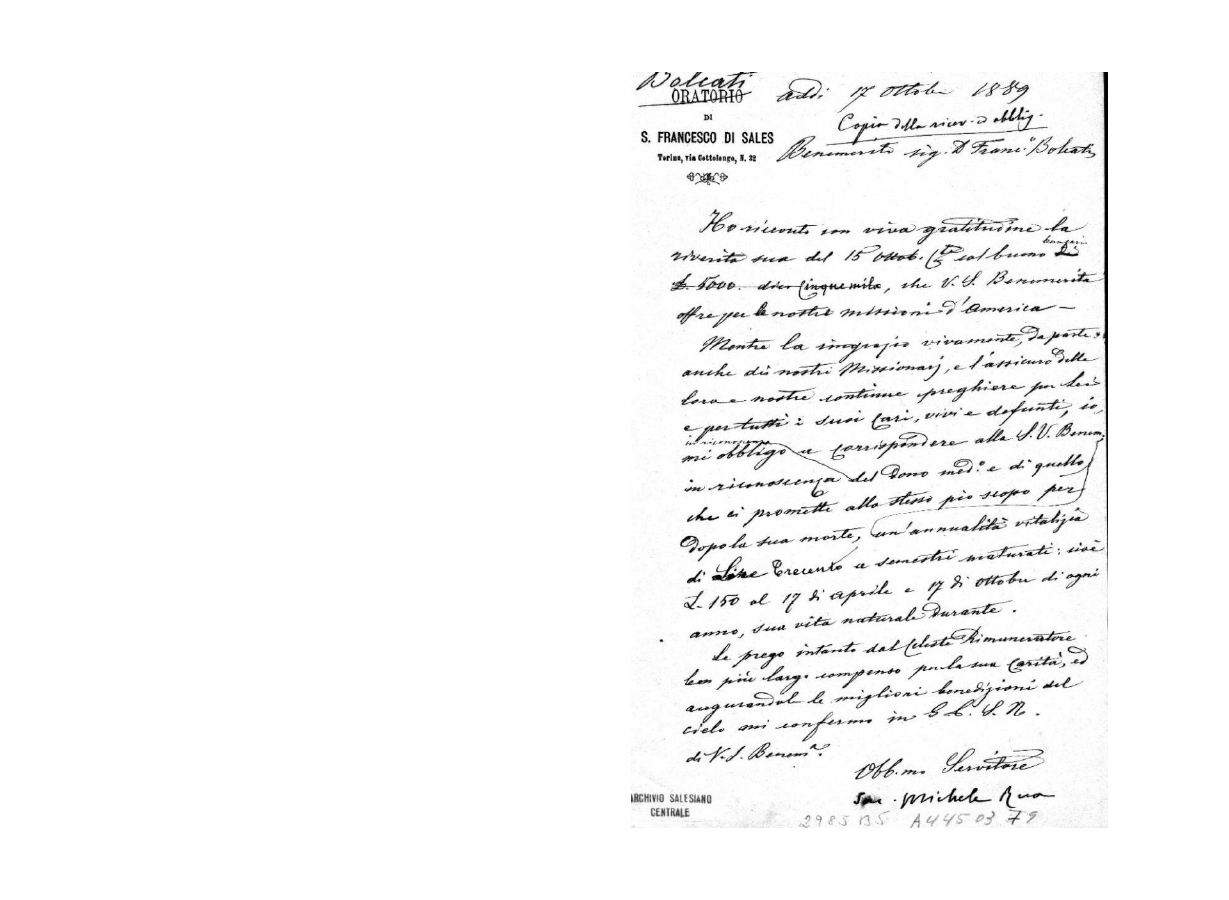 Bolcati
ORATORIO
DI
S. FRANCESCO DI SALES
Torino, via Cottolengo, N. 32
addi 17 Ottobre 1889
Copia della ricev. ed obblig.
Benemerito sig. D Franc.o Bolcati
Ho ricevuto con viva gratitudine la
riverita sua del 15 Ottob. col buono di
bancari
L. 5000. dico Cinquemila, che V. S. Benemerita
offre per le nostre missioni d'America —
Mentre la ringrazio vivamente, da parte
anche dei nostri Missionarj, e l'assicuro delle
loro e nostre continue preghiere per Lei
e per tutti i suoi Cari, vivi e defunti, io,
in riconoscenza
mi obbligo a corrispondere alla S. V. Benem.
in riconoscenza del Dono med.o e di quello
che ci promette allo stesso pio scopo per
dopo la sua morte, un'annualità vitalizia
di Lire Trecento a semestri maturati: cioè
L. 150 al 17 di aprile e 17 di Ottobre di ogni
anno, sua vita naturale durante.
Le prego intanto dal Celeste Rimuneratore
ben più largo compenso per la sua Carità, ed
augurandole le migliori benedizioni del
cielo mi confermo in G. C. S. N.
di V. S. Benem.a
Obb.mo Servitore
Sac. Michele Rua
ARCHIVIO SALESIANO
CENTRALE
2985 B5 A445 03 79